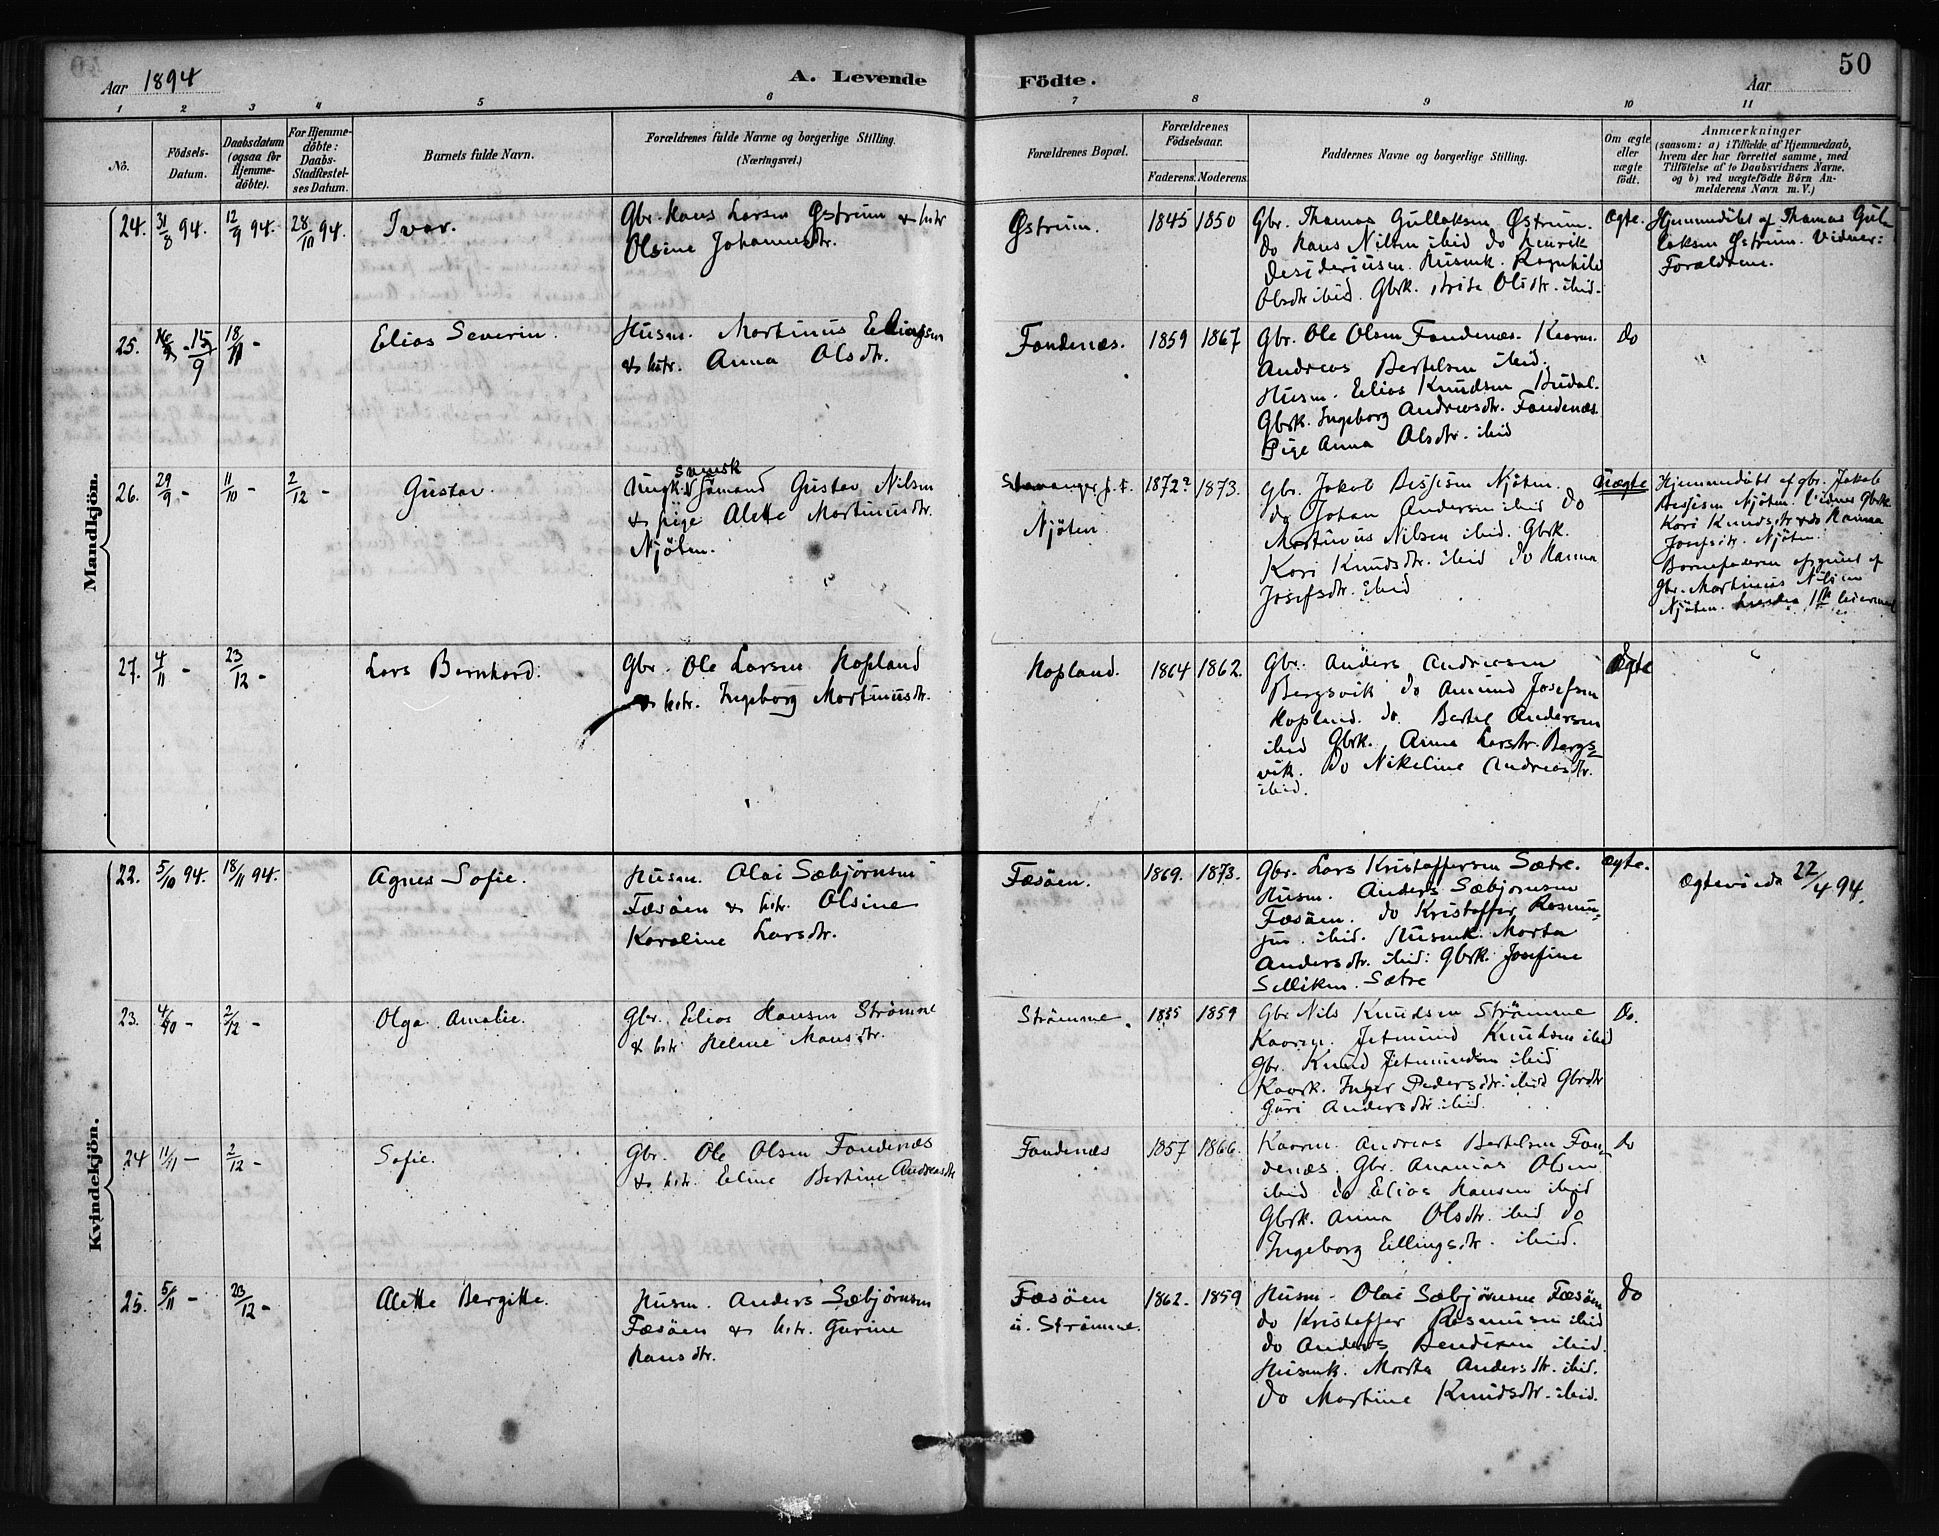 Aar 1894
A. Levende
Födte.
Aar
50
1 2 3 4 5 6 7 8 9 10 11
No.
Födsels-
Datum.
Daabsdatum
(ogsaa for
Hjemme-
döbte).
For Hjemme-
döbte:
Daabs-
Stadfæstel-
ses Datum.
Barnets fulde Navn.
Forældrenes fulde Navne og borgerlige Stilling.
(Næringsvei.)
Forældrenes Bopæl.
Forældrenes
Födselsaar.
Faderens. Moderens.
Faddernes Navne og borgerlige Stilling.
Om ægte
eller
uægte
født.
Anmærkninger
(saasom: a) i Tilfælde af Hjemmedaab,
hvem der har forrettet samme, med
Tilföielse af to Daabsvidners Navne.
og b) ved uægtefödte Börn An-
melderens Navn m. V.)
Mandkjön.
24. 31/8 94. 12/9 94. 28/11 94. Ivar.
Gbr. Hans Larsen Østrum & hstr
Olsine Johannesdtr.
Østrum. 1845 1850
Gbr. Thomas Gulloksen Østrum.
do Hans Nilsen ibid do Henrik
Desideriusen. Husmk. Ragnhild
Olsdtr ibid. Gbrk. Olsdtr. ibid.
Ægte.
Hjemmedöbt af Thomas Gul
loksen Østrum. Vidner:
Forældrene.
25. 15/9 18/11 - Elias Severin.
Husm. Martinus Ellingsen
& hstr. Anna Olsdtr.
Fondenæs. 1859 1867
Gbr. Ole Olsen Fondenæs. Kaarm.
Andreas Bertelsen ibid.
Husm. Elias Knudsen Budal.
Gbrk. Ingeborg Andreasdtr. Fondenæs
Pige Anna Olsdtr. ibid
do
26. 29/9 - 11/10 - 2/12 - Gustav.
svensk
Ungk. Sömand Gustav Nilsen
& pige Alette Martinusdtr.
Njöten.
Stavanger f. t.
Njöten
1872? 1873.
Gbr. Jakob Bessesen Njöten.
do Johan Andersen ibid do
Martinus Nilsen ibid. Gbrk.
Kari Knudsdtr. ibid do Hanna
Josefsdtr. ibid
Uægte
Hjemmedöbt af gbr. Jakob
Bessesen Njöten. Vidner Gbrk
Kari Knudsdtr & do Hanna
Josefsdtr. Njöten.
Barnefaderen opgivet af
Gbr. Martinus Nilsen
Njöten. 1ste leiermaal
27. 4/11 - 23/12 - Lars Bernhard.
Gbr. Ole Larsen Hopland
& hstr. Ingeborg Martinusdtr.
Hopland. 1864 1862.
Gbr. Anders Andreasen
Bergsvik do Amund Josefsen
Hopland. do. Bertel Andersen
ibid Gbrk. Anna Larsdtr. Bergs-
vik. Do Nikeline Andreasdtr.
ibid.
Ægte
Kvindekjön.
22. 5/10 94. 18/11 94. Agnes Sofie.
Husm. Olai Sæbjörnsen
Fæsöen & hstr. Olsine
Karoline Larsdtr.
Fæsöen. 1869. 1873.
Gbr. Lars Kristoffersen Sætre.
Husm. Anders Sæbjörnsen
Fæsöen. do Kristoffer Rasmu-
sen. ibid. Husmk. Marta
Andersdtr. ibid: Gbrk. Josefine
Selliken. Sætre
Ægte.
Ægteviede 22/4 94.
23. 4/10 - 2/12 - Olga Amalie.
Gbr. Elias Hansen Strömme
& hstr Helene Monsdtr.
Strömme. 1855 1859
Gbr Nils Knudsen Strömme
Kaarm. Jetmund Knudsen ibid
Gbr. Knud Jetmundsen ibid
Kaark. Inger Pedersdtr. ibid Gbrdtr
Guri Andersdtr. ibid.
Do.
24 11/11 - 2/12 - Sofie.
Gbr. Ole Olsen Fondenæs
& hstr. Eline Bertine Andreasdtr
Fondenæs 1857 1866.
Kaarm. Andreas Bertelsen Fon-
denæs. Gbr. Ananias Olsen
ibid do Elias Hansen ibid
Gbrk. Anna Olsdtr. ibid do
Ingeborg Ellingsdtr. ibid.
do
25. 5/11 - 23/12 - Alette Bergitte.
Husm. Anders Sæbjörnsen
Fæsöen & hstr. Gurine
Hansdtr.
Fæsöen
u. Strömme.
1862. 1859
Husm. Olai Sæbjörnsen Fæsöen
do Kristoffer Rasmusen ibid
do Anders Bendixen ibid.
Husmk. Marta Andersdtr. ibid.
Do Martine Knudsdtr. ibid.
do